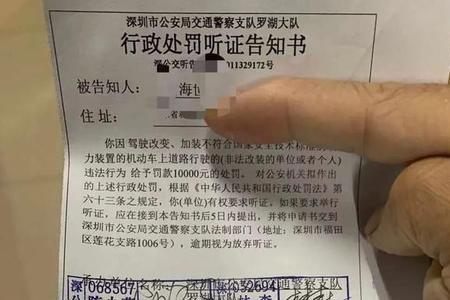 深圳市公安局交通警察支队罗湖大队
行政处罚听证告知书
深公交听告 011329172号
被告知人: 海
住 址: 省
你因 驾驶改变、加装不符合国家安全技术标准的
力装置的机动车上道路行驶的(非法改装的单位或者个人)
违法行为 给予罚款10000元的处罚。对公安机关拟作出
的上述行政处罚,根据《中华人民共和国行政处罚法》第
六十三条之规定,你(单位)有权要求听证。如果要求举行
听证,应在接到本告知书后5日内提出,并将申请书交到
深圳市公安局交通警察支队法制部门(地址:深圳市福田
区莲花支路1006号),逾期视为放弃听证。
深 068567 名称: 深圳市公 032694 通警察支队